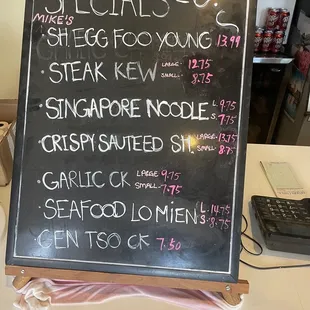 SPECIALS
MIKE'S
· SH. EGG FOO YOUNG 13.99
· STEAK KEW LARGE· 12.75
SMALL· 8.75
· SINGAPORE NOODLE L 9.75
S. 7.75
· CRISPY SAUTEED SH. LARGE· 13.75
SMALL· 8.75
· GARLIC CK LARGE 9.75
SMALL· 7.75
· SEAFOOD LO MIEN L. 14.75
S· 8.75
· GEN TSO CK 7.50